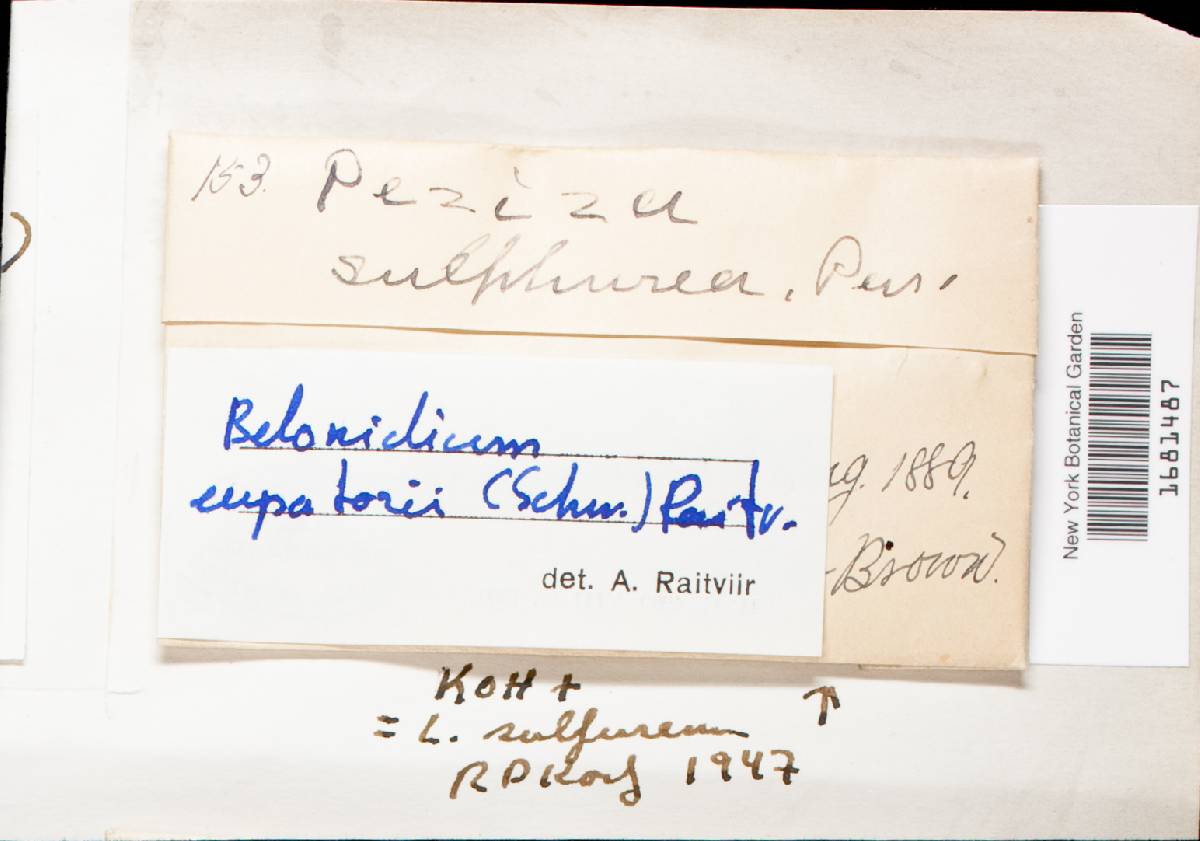 153. Peziza
sulphurea. Pers.
Belonidium
eupatorii (Schw.) Raitv.
det. A. Raitviir
ug. 1889.
-Brown.
KOH +
= L. sulfureum
RPKorf 1947
New York Botanical Garden
1681487